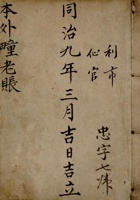 利市
仙官
忠字七號
同治九年三月吉日吉立
本外疃老賬